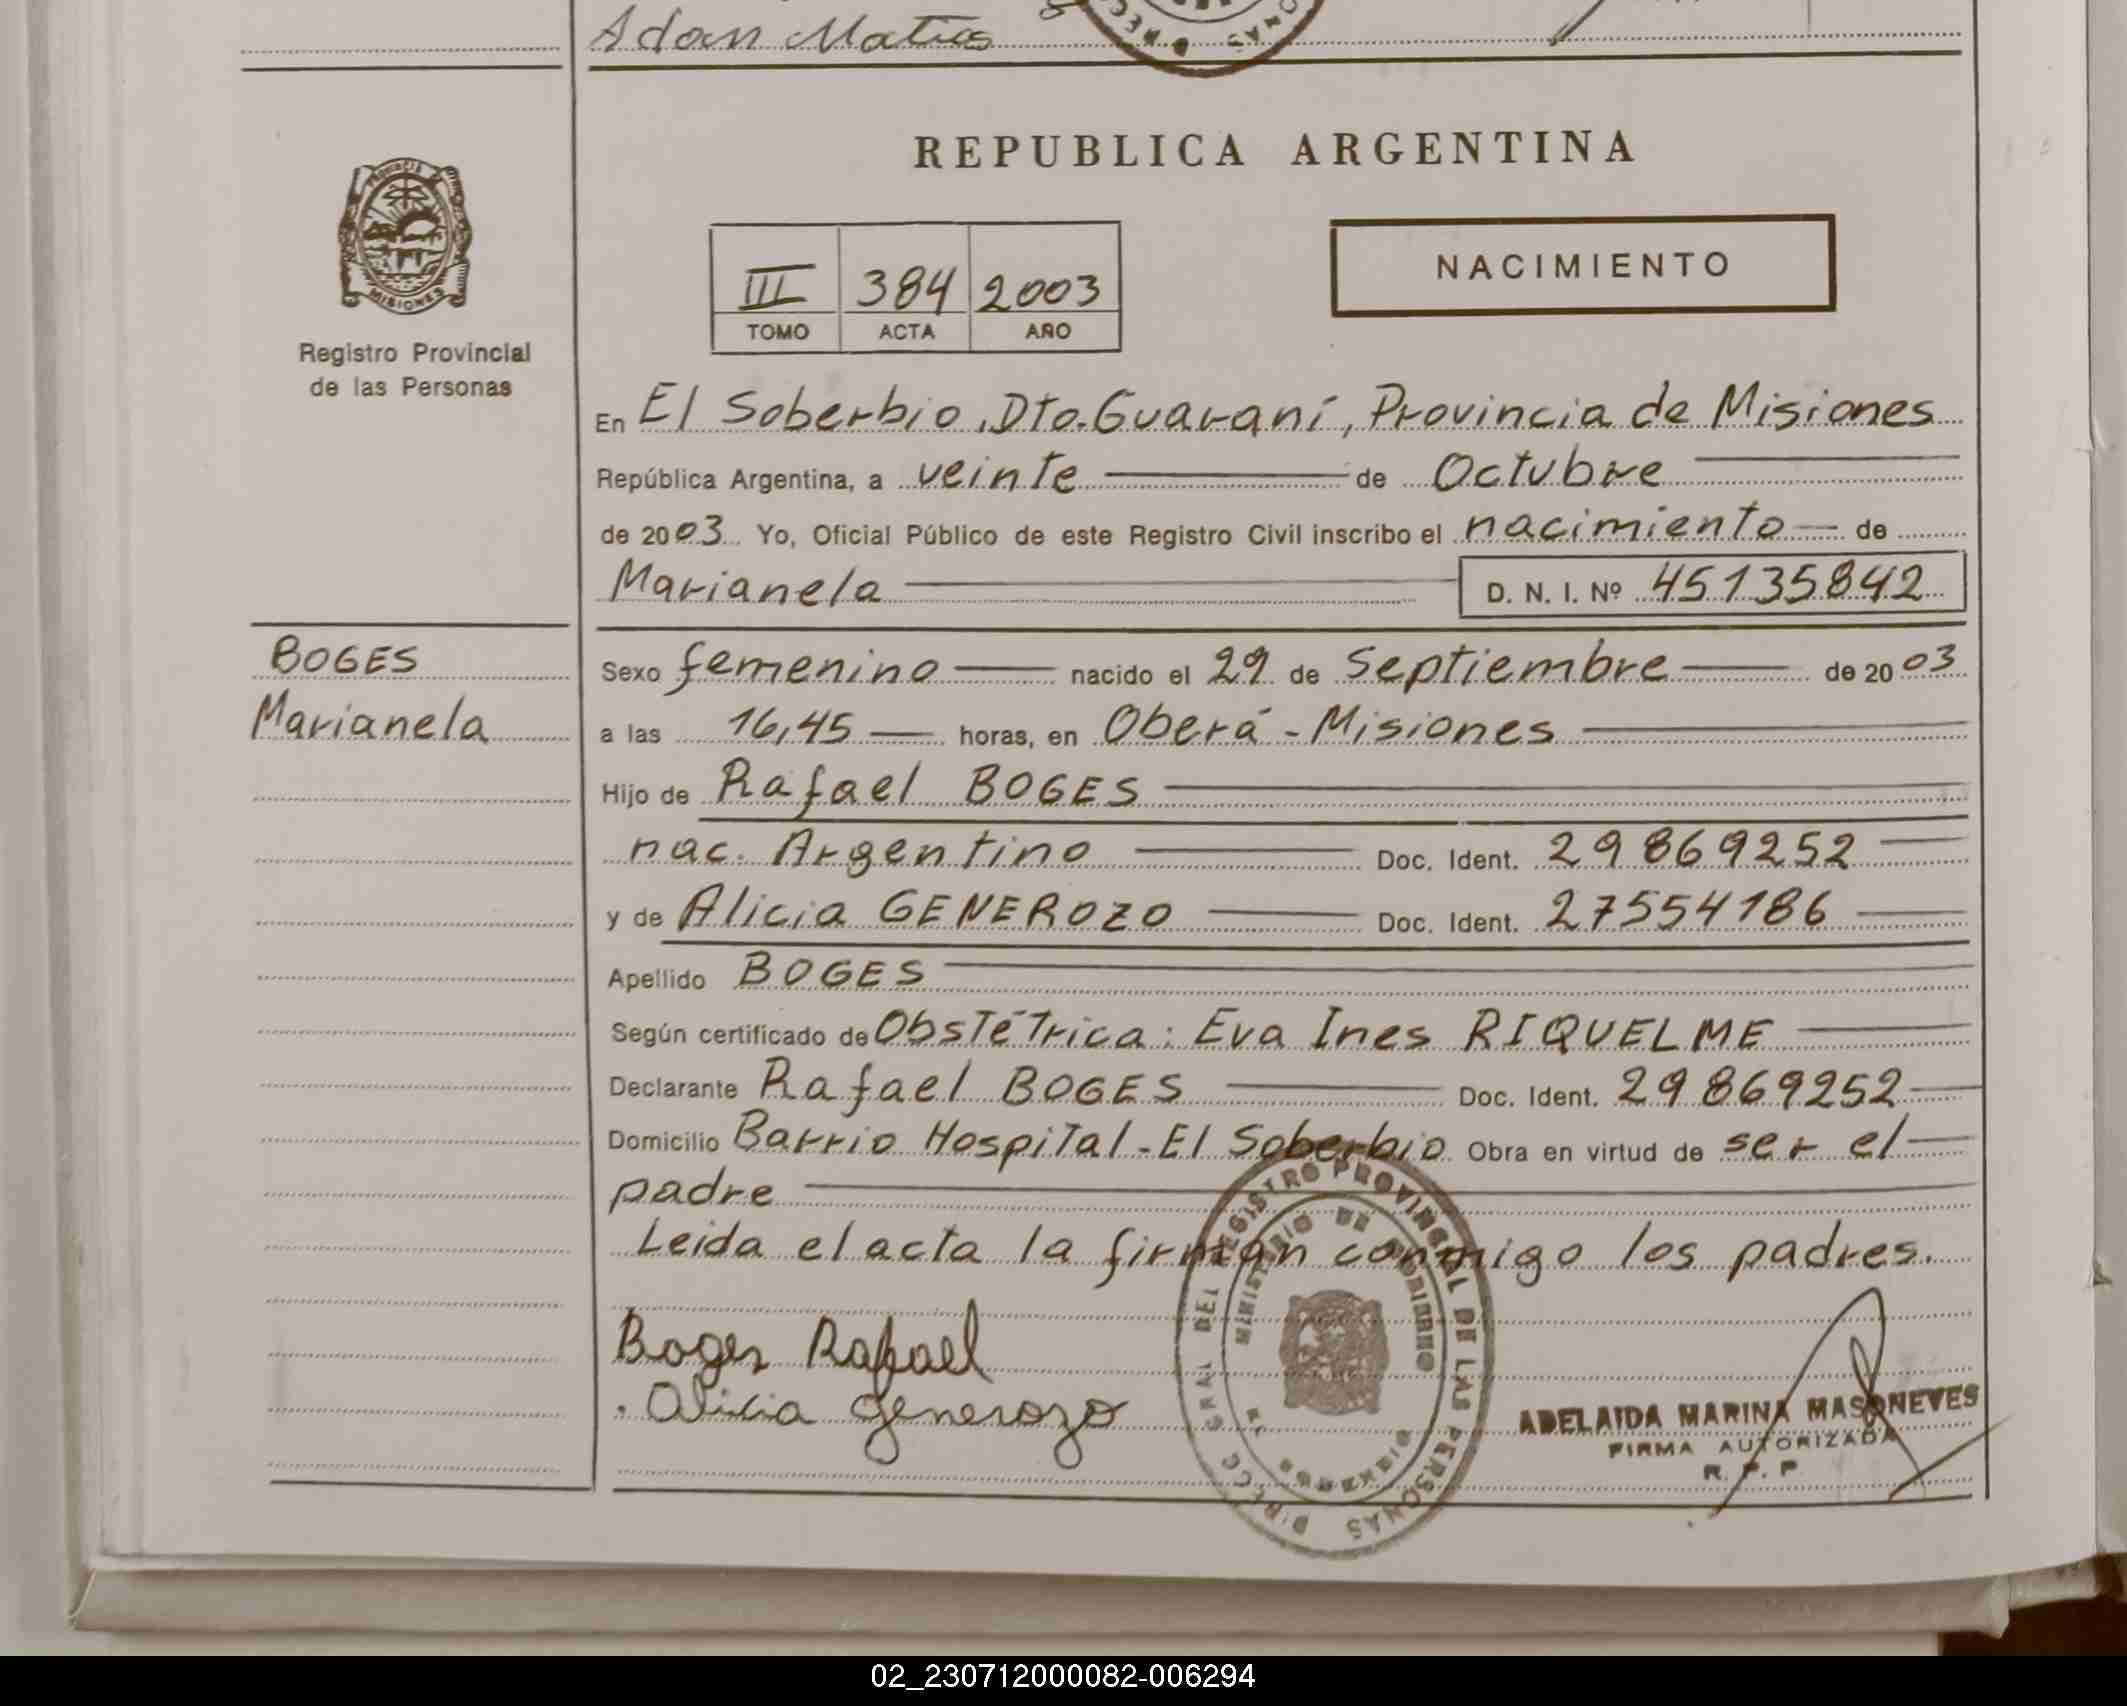 Adan Matias
REPUBLICA ARGENTINA
PROVINCIA DE
MISIONES
Registro Provincial
de las Personas
III 384 2003
TOMO ACTA AÑO
NACIMIENTO
En El Soberbio, Dto. Guaraní, Provincia de Misiones
República Argentina, a veinte de Octubre
de 2003 Yo, Oficial Público de este Registro Civil inscribo el nacimiento de
Marianela D. N. I. Nº 45135842
BOGES
Marianela
Sexo femenino nacido el 29 de Septiembre de 2003
a las 16,45 horas, en Oberá - Misiones
Hijo de Rafael BOGES
nac. Argentino Doc. Ident. 29869252
y de Alicia GENEROZO Doc. Ident. 27554186
Apellido BOGES
Según certificado de Obstétrica: Eva Ines RIQUELME
Declarante Rafael BOGES Doc. Ident. 29869252
Domicilio Barrio Hospital - El Soberbio Obra en virtud de ser el
padre
Leida el acta la firman conmigo los padres.
Boges Rafael
Alicia Generozo
DIRECC GRAL DEL REGISTRO PROVINCIAL DE LAS PERSONAS
MINISTERIO DE GOBIERNO
MISIONES
ADELAIDA MARINA MASONEVES
FIRMA AUTORIZADA
R. P. P
02_230712000082-006294